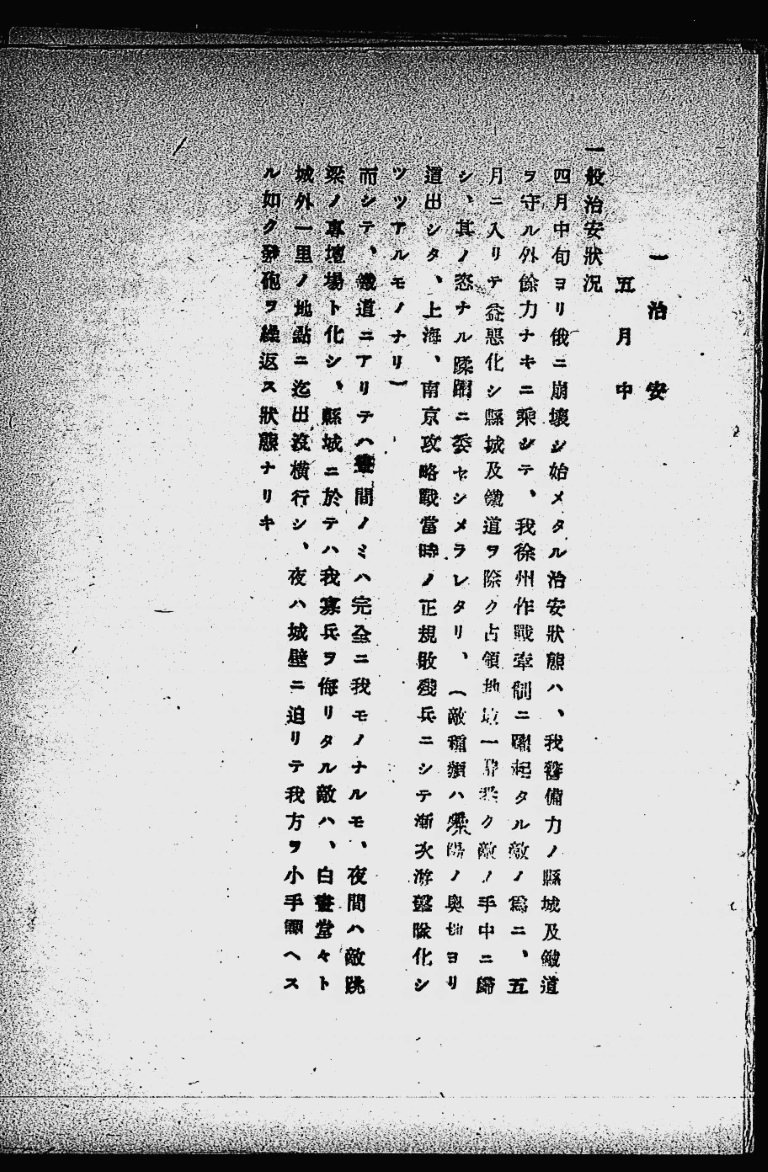 一 治 安
五 月 中
一般治安狀況
四月中旬ヨリ俄ニ崩壞シ始メタル治安狀態ハ、我警備力ノ縣城及鐵道
ヲ守ル外餘力ナキニ乘シテ、我徐州作戰牽制ニ躍起タル敵ノ爲ニ、五
月ニ入リテ益惡化シ縣城及鐵道ヲ除ク占領地 一 ク敵ノ手中ニ歸
シ、其ノ恣ナル蹂躙ニ委セシメラレタリ、(敵種類ハ ノ奧地ヨリ
道出シタ、上海、南京攻略戰當時ノ正規敗殘兵ニシテ漸次游擊隊化シ
ツツアルモノナリ)
而シテ、鐵道ニアリテハ晝間ノミハ完全ニ我モノナルモ、夜間ハ敵跳
梁ノ專壇場ト化シ、縣城ニ於テハ我寡兵ヲ侮リタル敵ハ、白晝堂々ト
城外一里ノ地點ニ迄出沒橫行シ、夜ハ城壁ニ迫リテ我方ヲ小手調ヘス
ル如ク發砲ヲ繰返ス狀態ナリキ